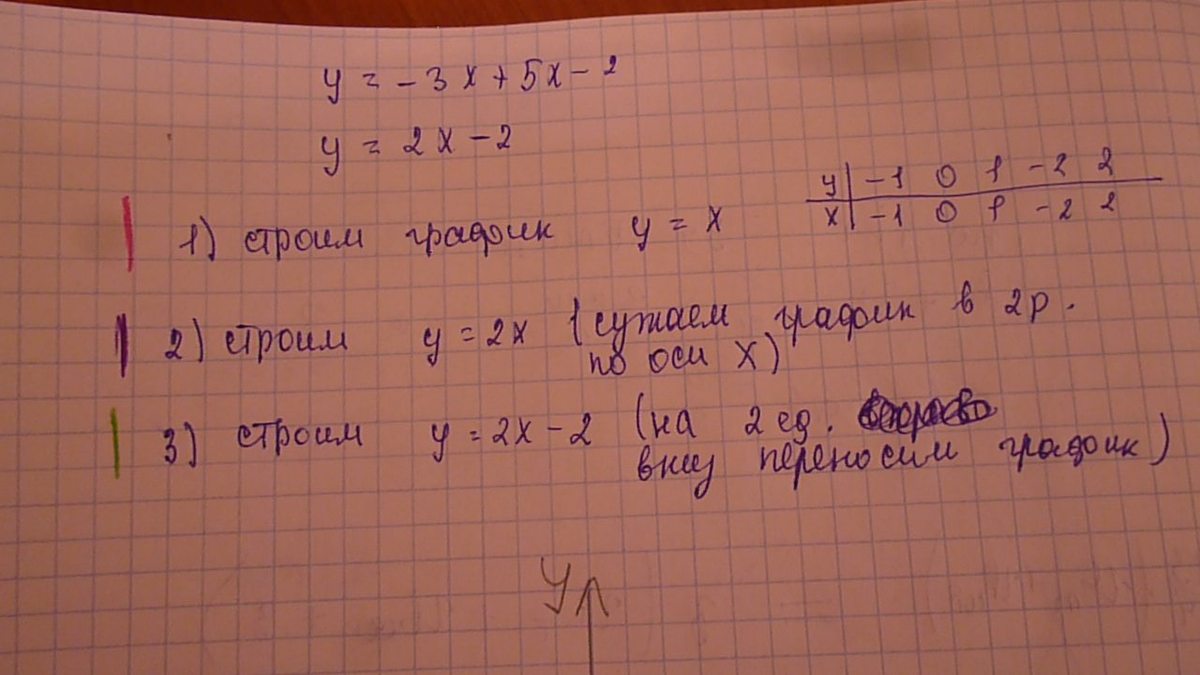 y = -3x+5x-2
y = 2x-2
y | -1 0 1 -2 2
x | -1 0 1 -2 2
1) строим график y = x
2) строим y = 2x (сужаем график в 2р.
по оси x)
3) строим y = 2x-2 (на 2 ед.
вниз переносим график)
y